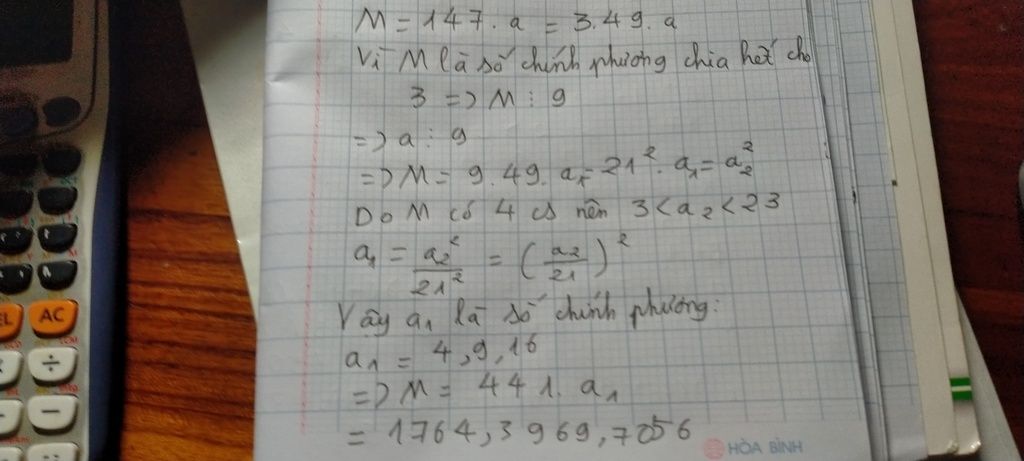 M = 147 . a = 3.49.a
Vì M là số chính phương chia hết cho
3 => M ⋮ 9
=> a ⋮ 9
=> M = 9.49.a₁ = 21² . a₁ = a₂²
Do M có 4 cs nên 3 < a₂ < 23
a₁ = a₂²/21² = (a₂/21)²
Vậy a₁ là số chính phương:
a₁ = 4,9,16
=> M = 441. a₁
= 1764,3969,7056
HÒA BÌNH
AC
÷
−